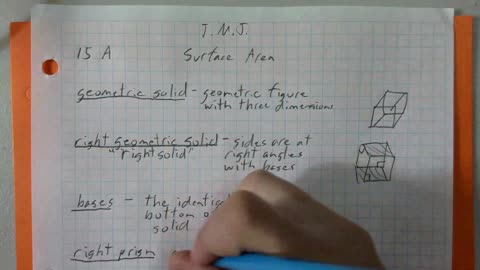 J.M.J.
15 A Surface Area
geometric solid - geometric figure
with three dimensions
right geometric solid - sides are at
"right solid" right angles
with bases
bases - the identical
bottom of
solid
right prism